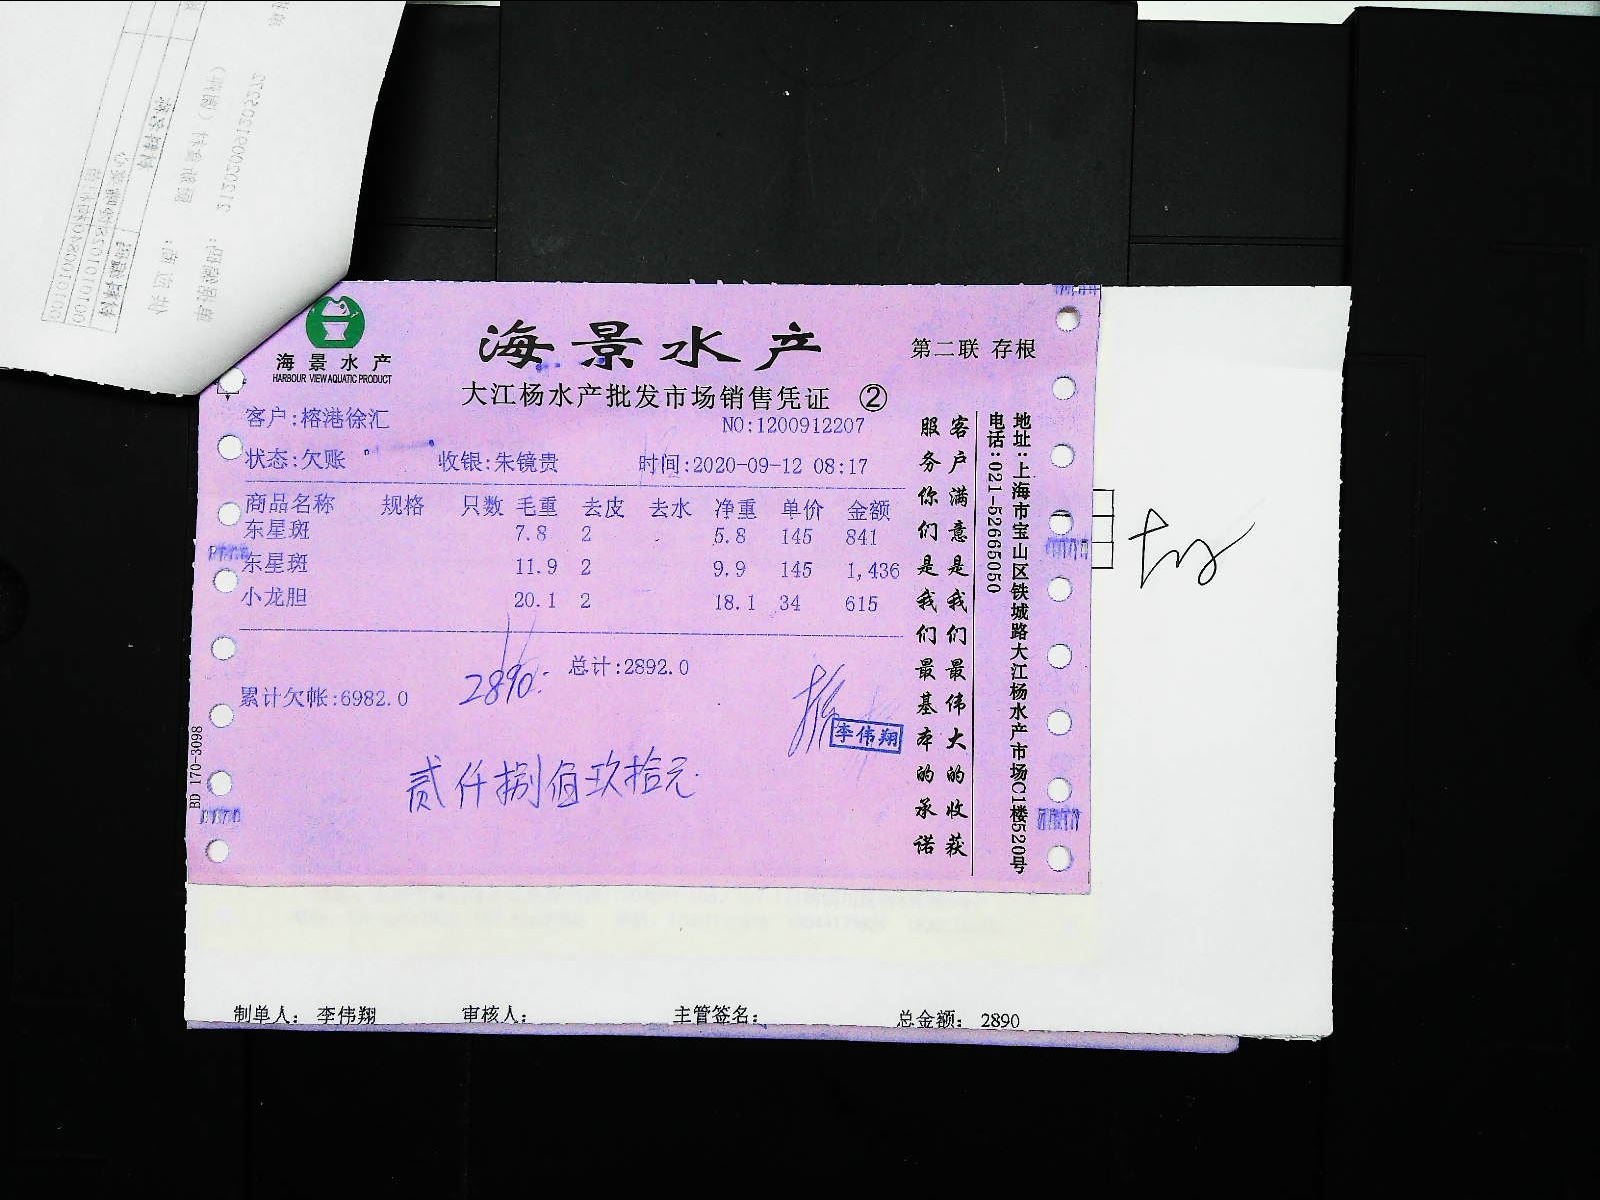 海景水产
HARBOUR VIEW AQUATIC PRODUCT
海景水产
第二联 存根
大江杨水产批发市场销售凭证 ②
客户:榕港徐汇
NO:1200912207
状态:欠账 收银:朱镜贵 时间:2020-09-12 08:17
商品名称 规格 只数 毛重 去皮 去水 净重 单价 金额
东星斑 7.8 2 5.8 145 841
东星斑 11.9 2 9.9 145 1,436
小龙胆 20.1 2 18.1 34 615
总计:2892.0
2890.-
累计欠帐:6982.0
李伟翔
贰仟捌佰玖拾元
BD 170-3098
客户满意是我们最伟大的收获
服务你们是我们最基本的承诺
地址:上海市宝山区铁城路大江杨水产市场C1楼520号
电话:021-52665050
制单人: 李伟翔 审核人: 主管签名: 总金额: 2890